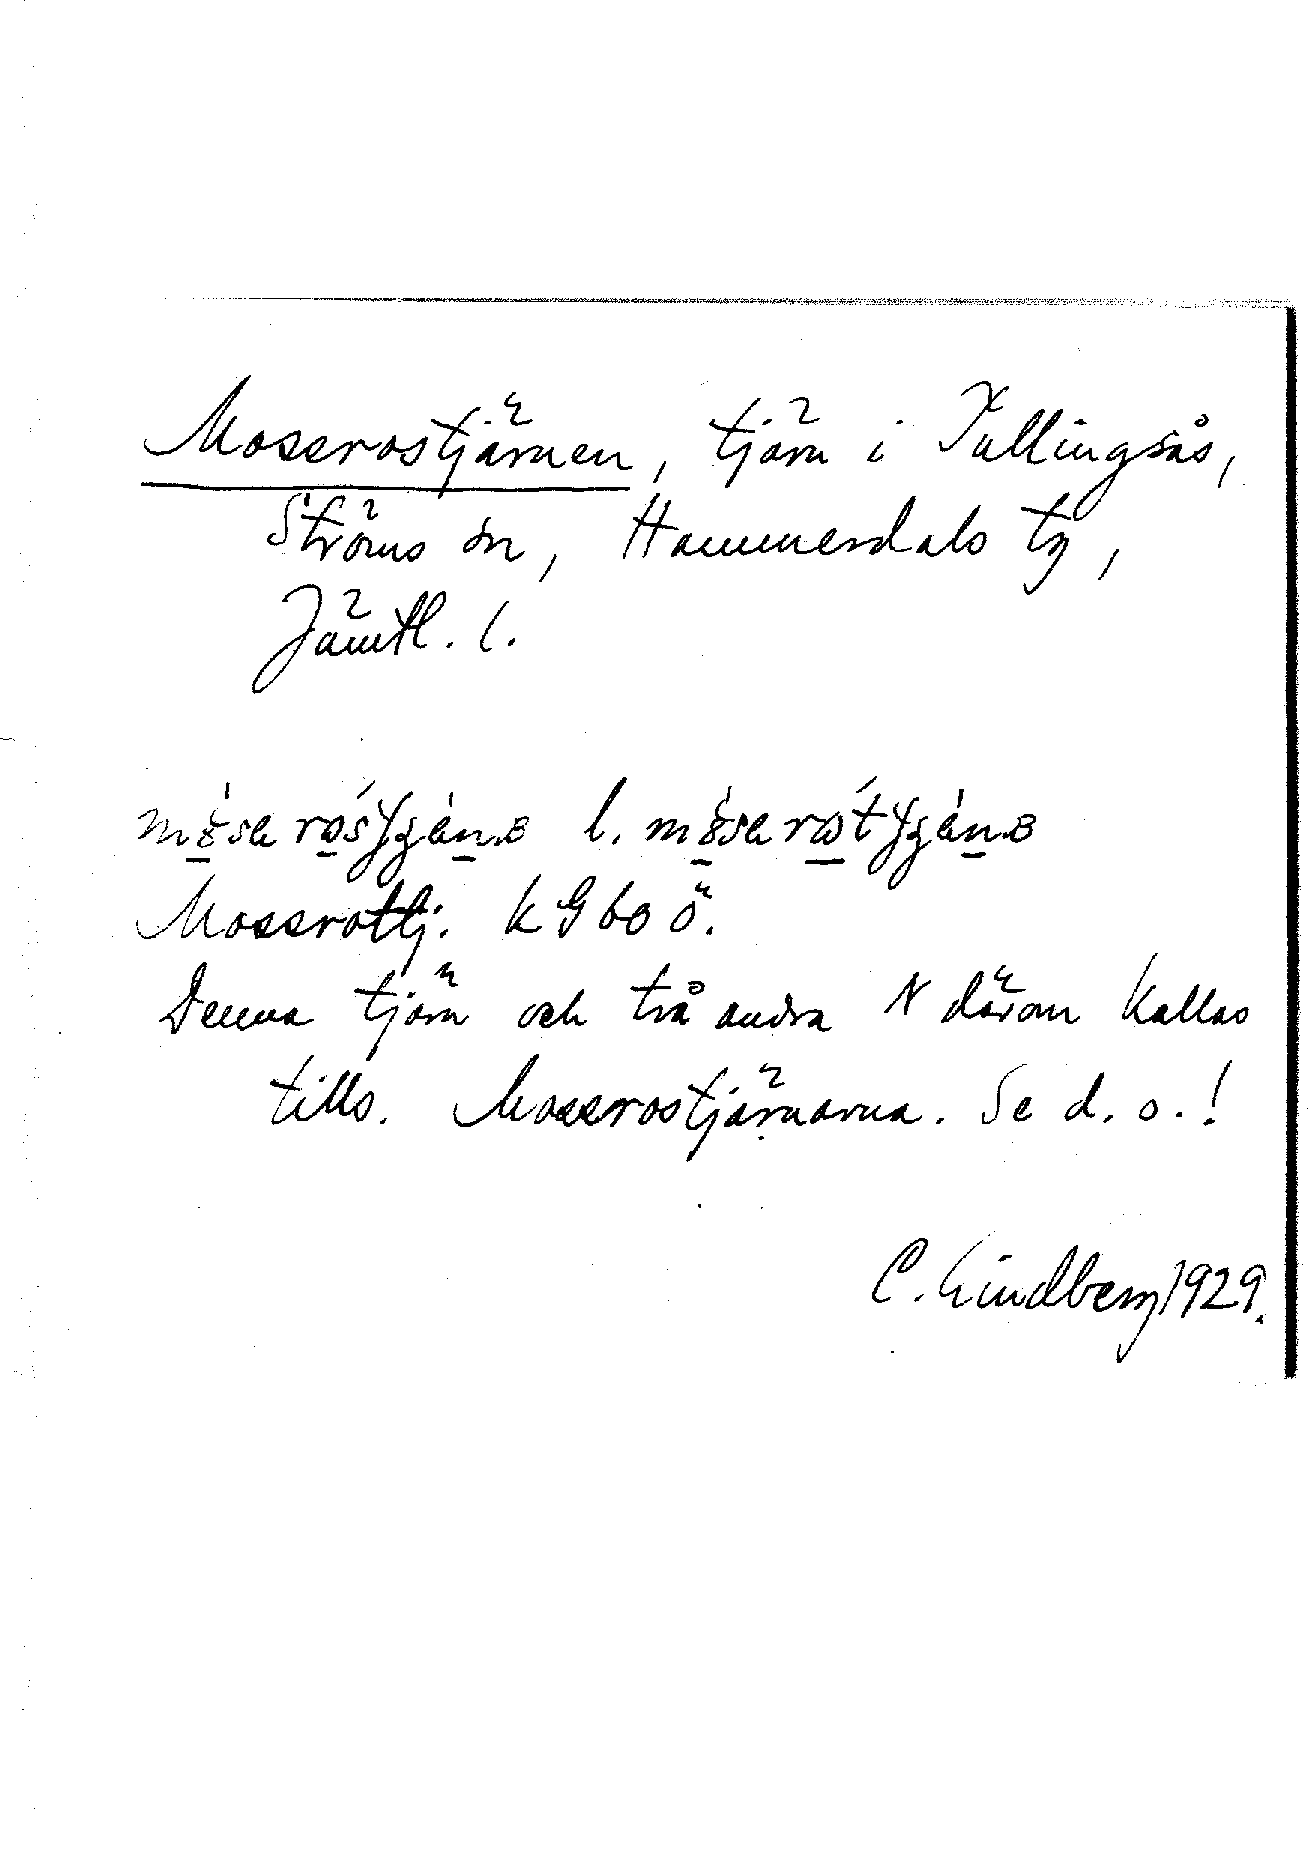 Mossrostjärnen, tjärn i Tullingsås,
Ströms sn, Hammerdals tg,
Jämtl. l.
l.
Mossrottj. k G bo ö.
Denna tjärn och två andra N därom kallas
tills. Mossrostjärnarna. Se d. o.!
C. Lindberg 1929.